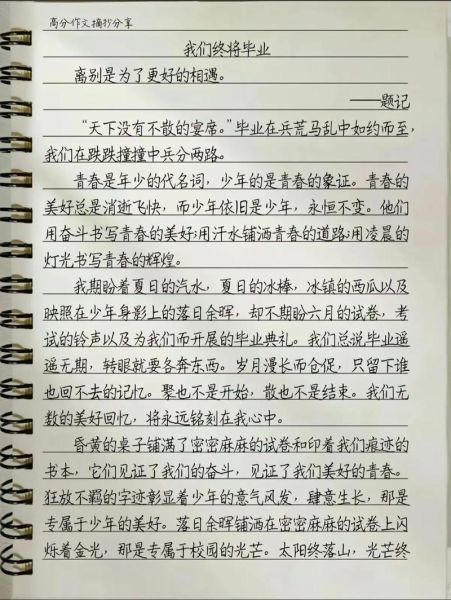 高分作文摘抄分享
我们终将毕业
离别是为了更好的相遇。
——题记
“天下没有不散的宴席。”毕业在兵荒马乱中如约而至，
我们在跌跌撞撞中兵分两路。
青春是年少的代名词，少年的是青春的象证。青春的
美好总是消逝飞快，而少年依旧是少年，永恒不变。他们
用奋斗书写青春的美好;用汗水铺洒青春的道路;用凌晨的
灯光书写青春的辉煌。
我期盼着夏日的汽水，夏日的冰棒，冰镇的西瓜以及
映照在少年身影上的落日余晖，却不期盼六月的试卷，考
试的铃声以及为我们而开展的毕业典礼。我们总说毕业遥
遥无期，转眼就要各奔东西。岁月漫长而仓促，只留下谁
也回不去的记忆。聚也不是开始，散也不是结束。我们无
数的美好回忆，将永远铭刻在我心中。
昏黄的桌子铺满了密密麻麻的试卷和印着我们痕迹的
书本，它们见证了我们的奋斗，见证了我们美好的青春。
狂放不羁的字迹彰显着少年的意气风发，肆意生长，那是
专属于少年的美好。落日余晖铺洒在密密麻麻的试卷上闪
烁着金光，那是专属于校园的光芒。太阳终落山，光芒终